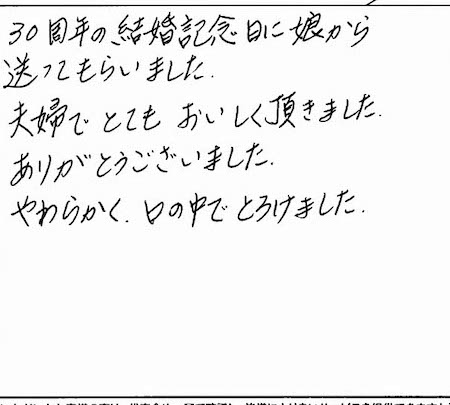 30周年の結婚記念日に娘から
送ってもらいました.
夫婦で とても おいしく頂きました.
ありがとうございました.
やわらかく. 口の中で とろけました.